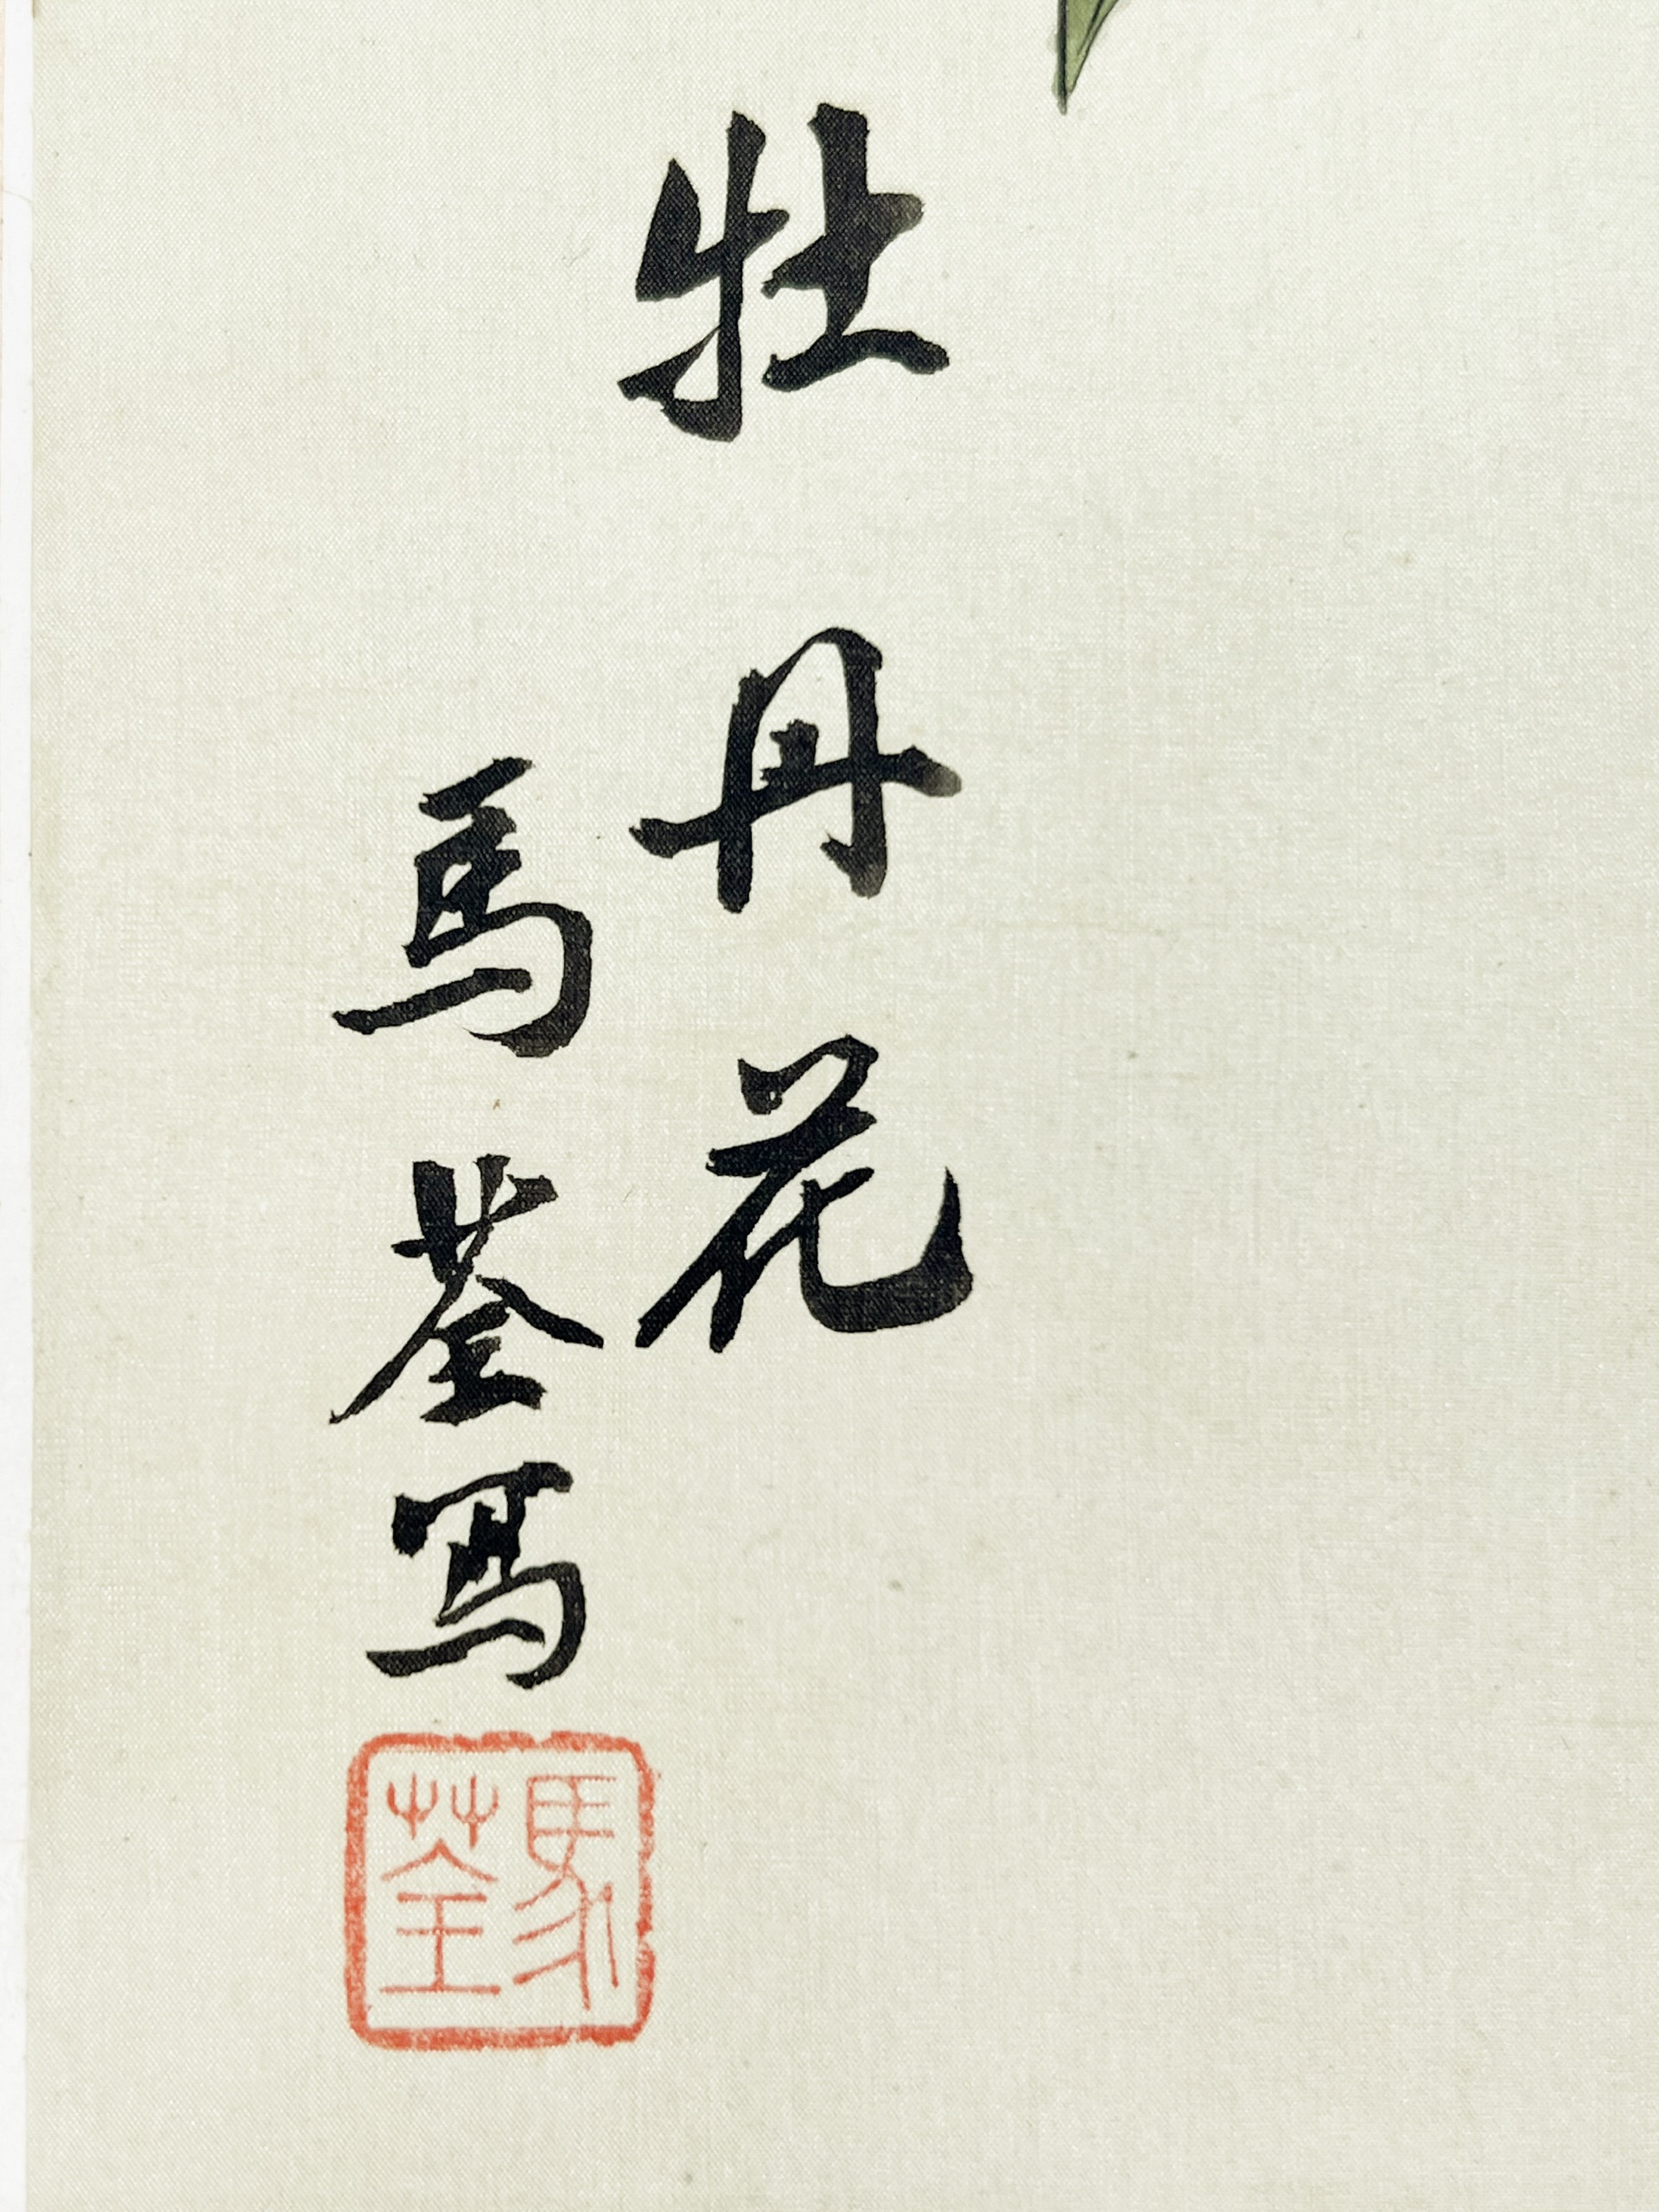 牡丹花
馬荃写
馬荃